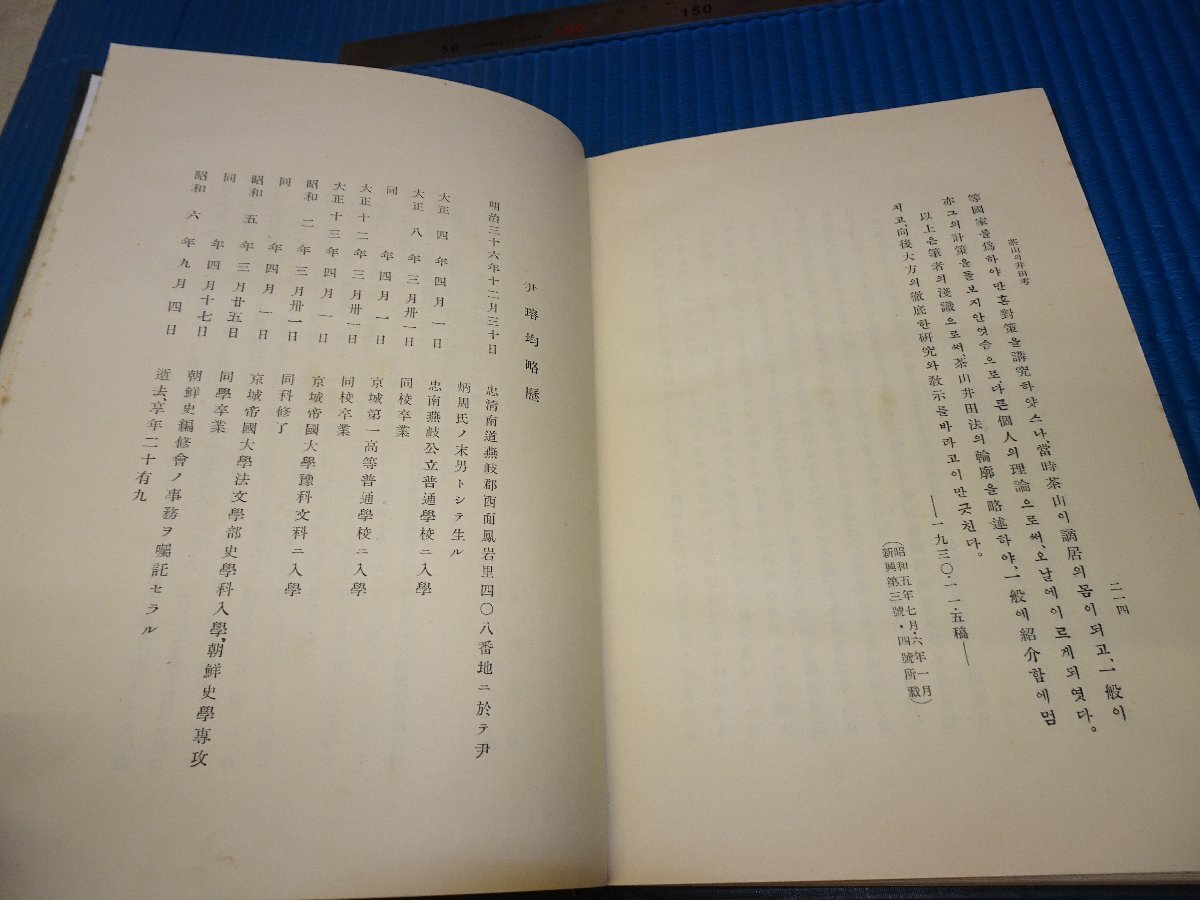 50
100
150
二一四
茶山의井田考
等國家를爲하야만흔對策을講究하얏스나、當時茶山이謫居의몸이되고、一般이
亦그의計策을돌보지안엇슴으로、다른個人의理論으로써、오날에이르게되엿다。
以上은筆者의淺識으로써、茶山井田法의輪廓을略述하야、一般에紹介함에멈
치고、向後大方의徹底한研究와敎示를바라고이만긋친다。
——一九三〇・一一・五稿——
(昭和五年七月・六年一月
新興第三號・四號所載)
尹瑢均略歷
明治三十六年十二月三十日 忠清南道燕岐郡西面鳳岩里四〇八番地ニ於テ尹
炳周氏ノ末男トシテ生ル
大正四年四月一日 忠南燕岐公立普通學校ニ入學
大正八年三月卅一日 同校卒業
同年四月一日 京城第一高等普通學校ニ入學
大正十二年三月卅一日 同校卒業
大正十三年四月一日 京城帝國大學豫科文科ニ入學
昭和二年三月卅一日 同科修了
同年四月一日 京城帝國大學法文學部史學科入學、朝鮮史學專攻
昭和五年三月廿五日 同學卒業
同年四月十七日 朝鮮史編修會ノ事務ヲ囑託セラル
昭和六年九月四日 逝去、享年二十有九